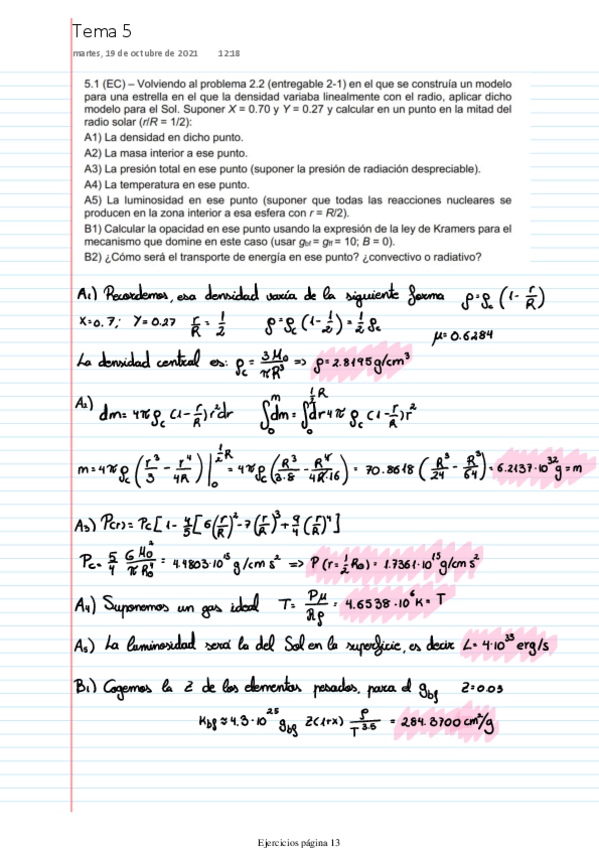 Tema 5
martes, 19 de octubre de 2021 12:18
5.1 (EC) – Volviendo al problema 2.2 (entregable 2-1) en el que se construía un modelo
para una estrella en el que la densidad variaba linealmente con el radio, aplicar dicho
modelo para el Sol. Suponer X = 0.70 y Y = 0.27 y calcular en un punto en la mitad del
radio solar (r/R = 1/2):
A1) La densidad en dicho punto.
A2) La masa interior a ese punto.
A3) La presión total en ese punto (suponer la presión de radiación despreciable).
A4) La temperatura en ese punto.
A5) La luminosidad en ese punto (suponer que todas las reacciones nucleares se
producen en la zona interior a esa esfera con r = R/2).
B1) Calcular la opacidad en ese punto usando la expresión de la ley de Kramers para el
mecanismo que domine en este caso (usar gbf = gff = 10; B = 0).
B2) ¿Cómo será el transporte de energía en ese punto? ¿convectivo o radiativo?
A1) Recordemos, esa densidad varía de la siguiente forma ρ=ρc (1- r/R)
X=0.7; Y=0.27 r/R = 1/2 ρ=ρc (1- 1/2) = 1/2 ρc
μ=0.6284
La densidad central es: ρc = 3M⊙/πR³ => ρ=2.8195g/cm³
A2) dm=4πρc (1- r/R) r²dr ∫₀ᵐdm=∫₀^(1/2 R) dr4πρc (1- r/R)r²
m=4πρc (r³/3 - r⁴/4R) |₀^(1/2 R) = 4πρc (R³/3·8 - R⁴/4R·16) = 70.8618 (R³/24 - R³/64) = 6.2137·10³²g=m
A3) P(r) = Pc [1- 4/5 [6(r/R)²-7(r/R)³+ 9/4 (r/R)⁴]
Pc= 5/4 G M⊙²/π R⊙⁴ = 4.4803·10¹⁵ g/cm s² => P(r= 1/2 R⊙) = 1.7361·10¹⁵g/cm s²
A4) Suponemos un gas ideal T= Pμ/Rρ = 4.6538·10⁶ K = T
A5) La luminosidad será la del Sol en la superficie, es decir L=4·10³³ erg/s
B1) Cogemos la Z de los elementos pesados, para el gbf Z=0.03
Kbf ≈ 4.3·10²⁵ gbf Z(1+x) ρ/T^3.5 = 284.3700 cm²/g
Ejercicios página 13